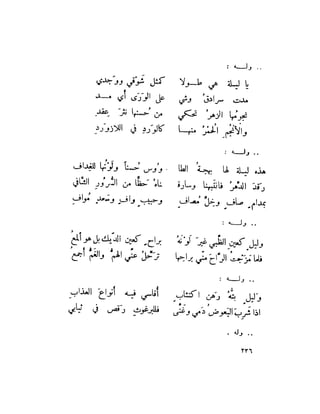 .. ولـــه :
يا ليـلة هي طـــولا كمثل شَوْقي ووَجدي
مدت سرادقَ وشي على الوَرَى أي مــد
نجومُها الزهرُ تحكي من حُسنها نثرَ عِقدِ
والأَنْجُم الحُمْرُ منهـــا كالوَردِ في اللازوَردِ
.. ولـــه :
هذه ليـلة لها بهجـةُ الطا ووس حُسناً ولَوْنُها للغِدافِ
رَقَدَ الدَّهرُ فانتَبهنا وسارة ناهُ حَظًّا من السُّرُورِ الشَّافي
بمدامٍ صافٍ وخِلٍّ مُصافٍ وحبيبٍ وافٍ وسَعدٍ مُوافِ
.. ولـــه :
وليلٍ كعينِ الظَّبي غيرَ لَونَهُ براحٍ كعين الدِّيك بل هو أَلمَعُ
فلما مَزَجتُ الرَّاحَ منّي براحها ترَحَّلَ عنّي الهمُّ والغَمُّ أَجمعُ
.. ولـــه :
وَليلٍ بتُّهُ رَهنَ اكتئابٍ أُقاسي فيـه أَنواعَ العذابِ
اذا شَرِبَ البَعوضُ دَمي وغَنَّى فللبرغوثِ رَقص في ثيابي
.. وله .
٢٣٦